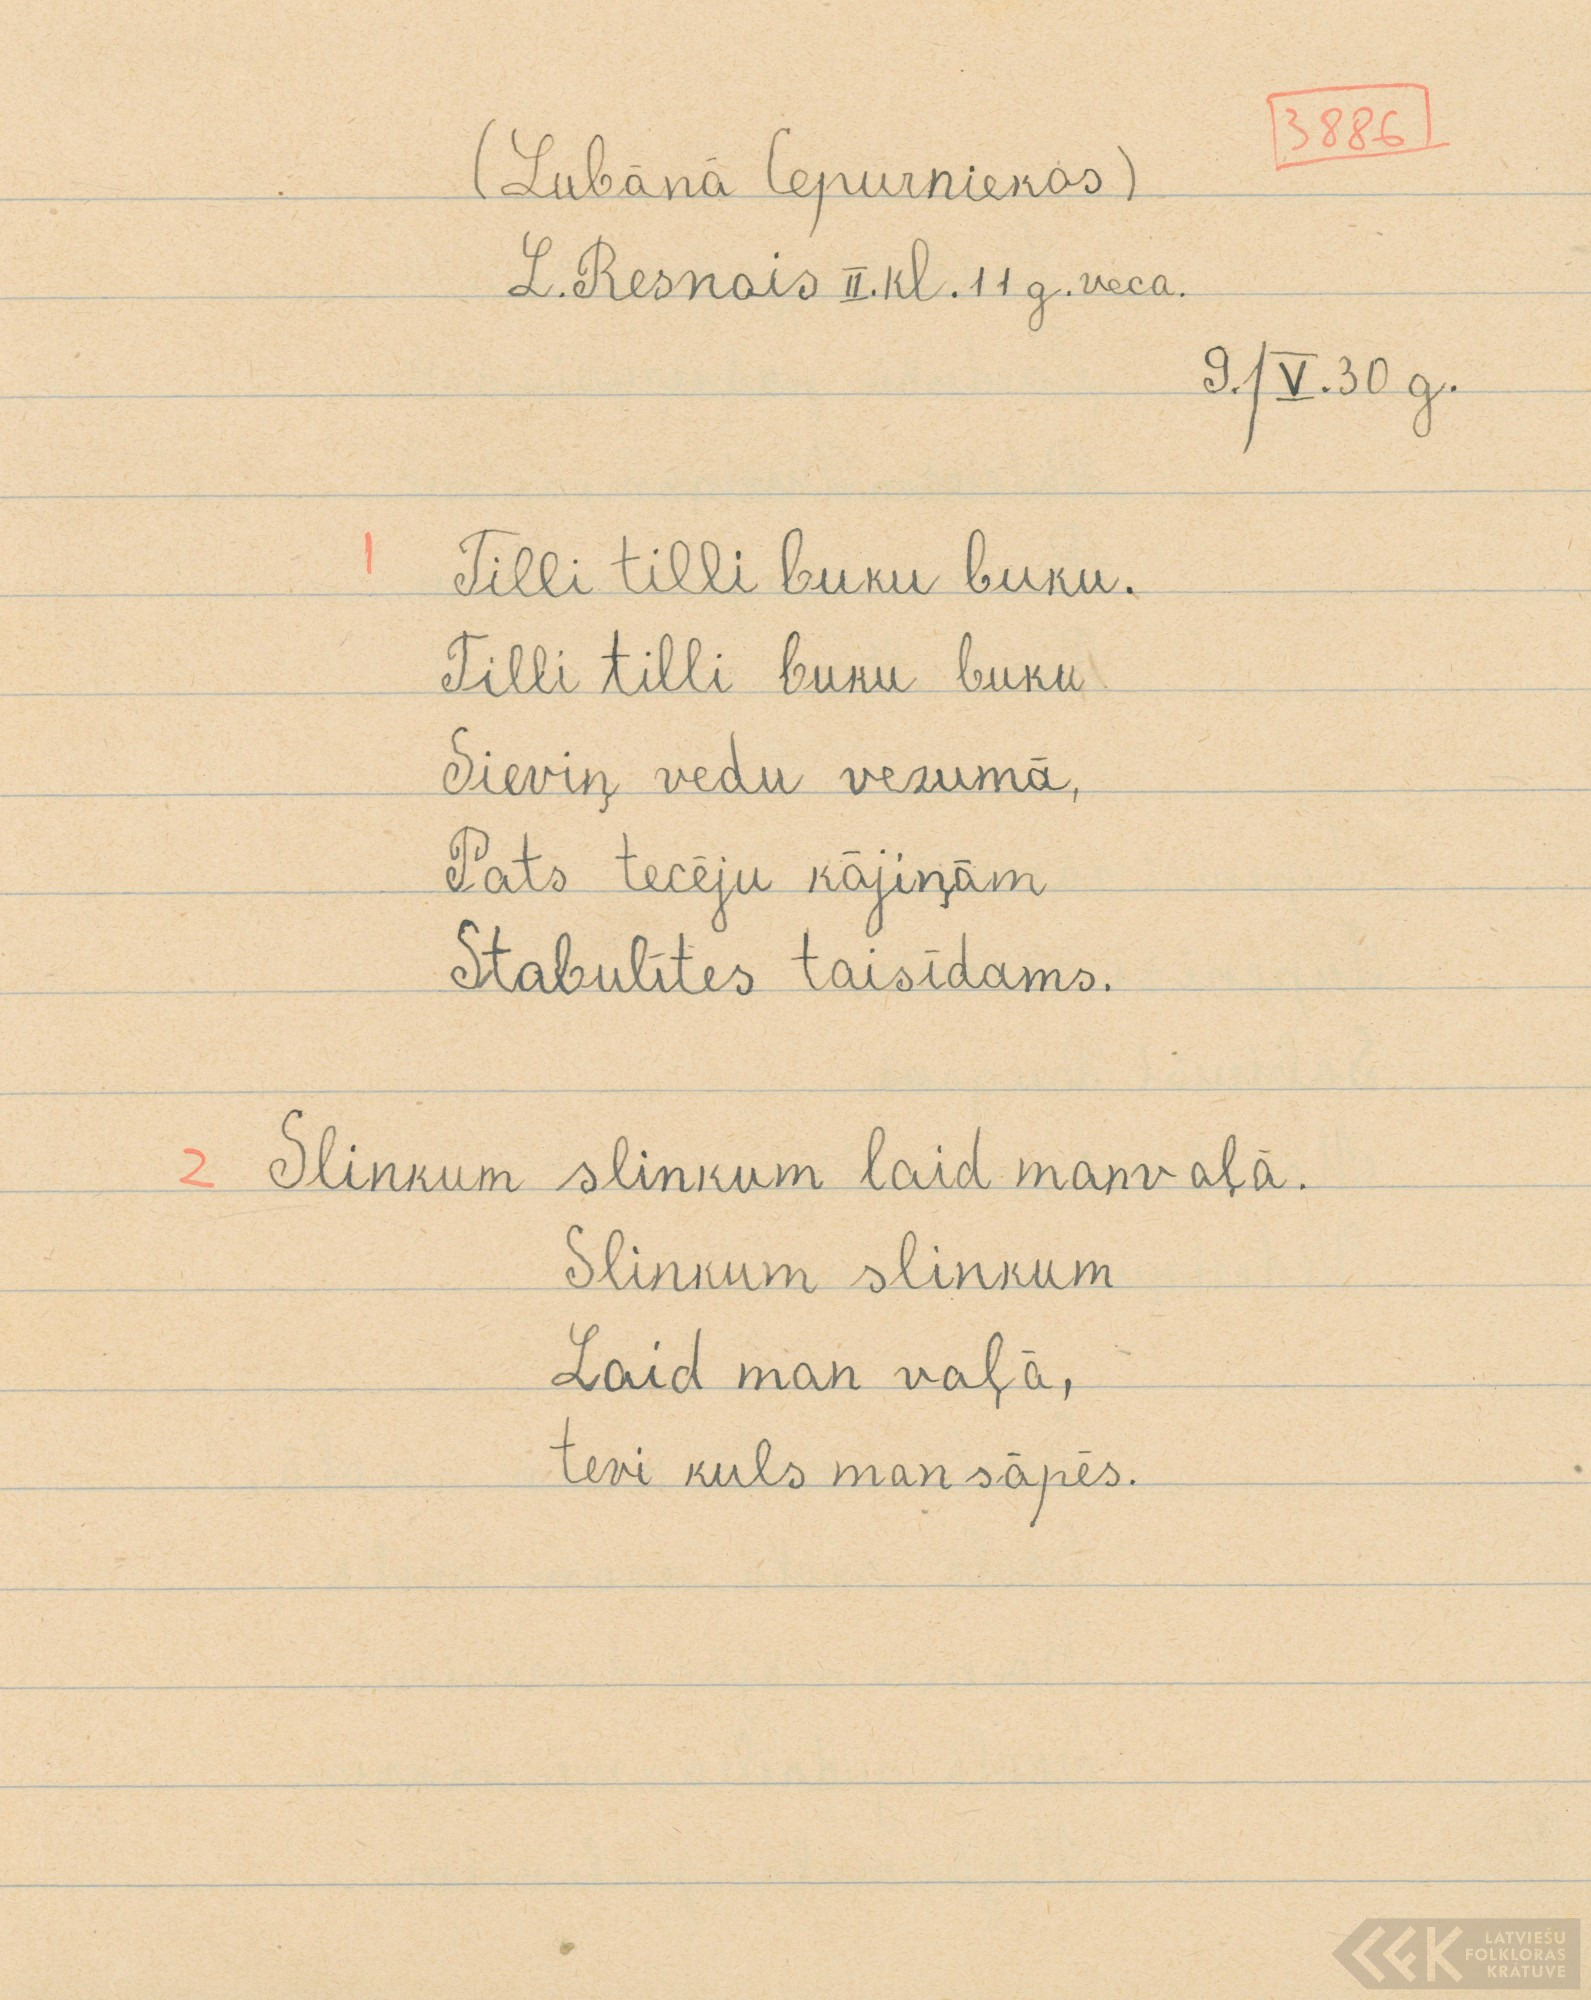 3886
(Lubānā Cepurniekos)
L. Resnais II. kl. 11 g. veca.
9./V. 30 g.
1 Tilli tilli buku buku.
Tilli tilli buku buku
Sieviņ vedu vezumā,
Pats tecēju kājiņām
Stabulītes taisīdams.
2 Slinkum slinkum laid man vaļā.
Slinkum slinkum
Laid man vaļā,
tevi kuls man sāpēs.
LATVIEŠU
FOLKLORAS
KRĀTUVE